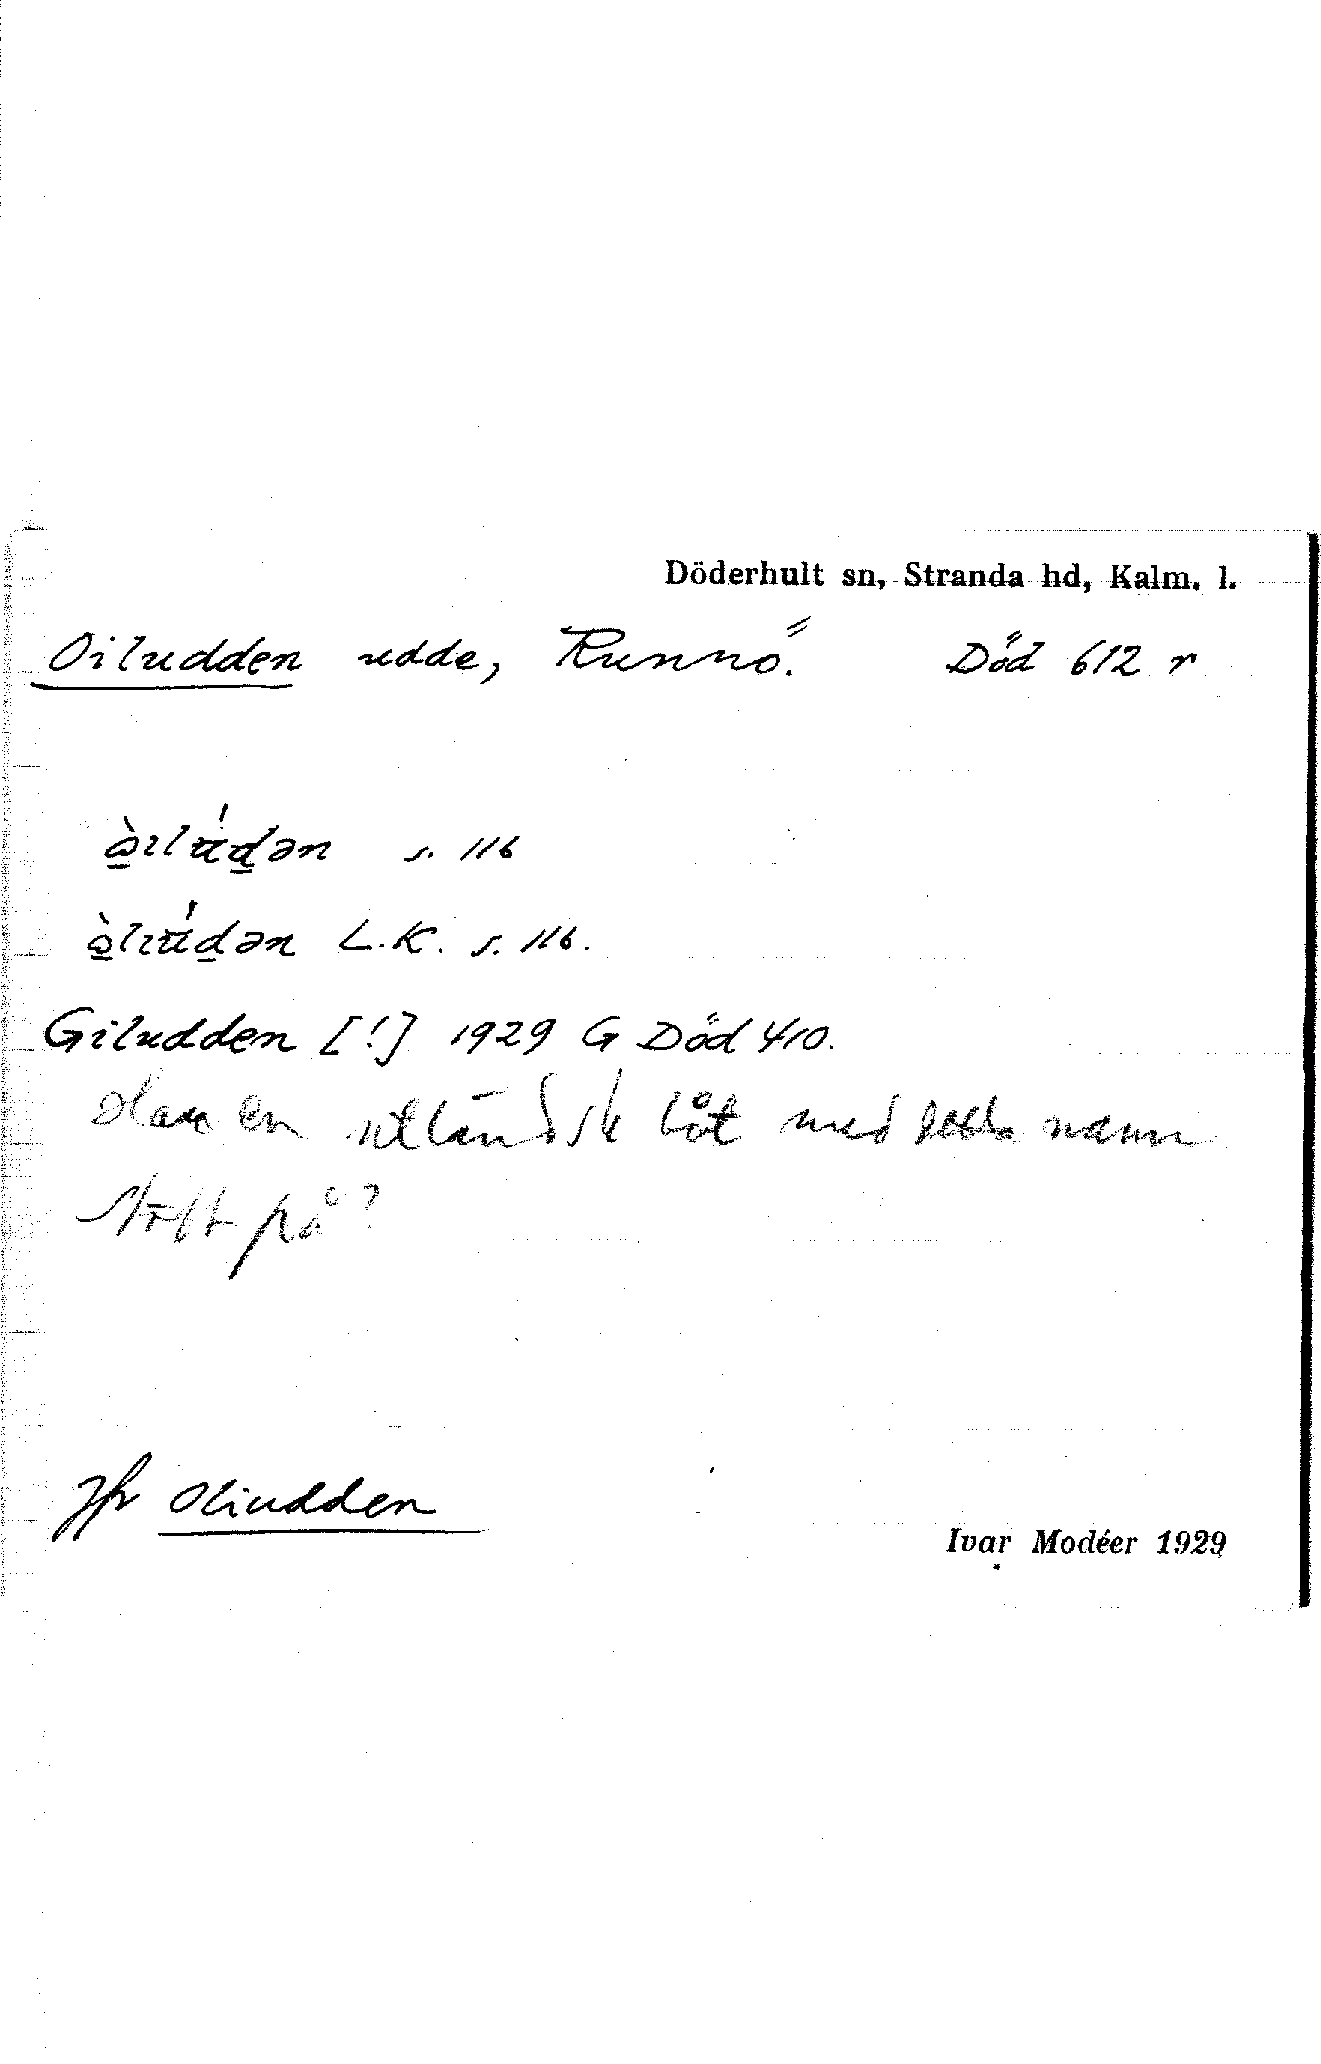 Döderhult sn, Stranda hd, Kalm. l.
Oiludden udde, Runnö. Död 612 r
ò̱ılu̍ḏən s. 116
ò̱lıu̍ḏən L.K. s. 116.
Giludden [!] 1929 G Död 410.
Har en utländsk båt med detta namn
stött på?
Jfr Oliudden
Ivar Modéer 1929